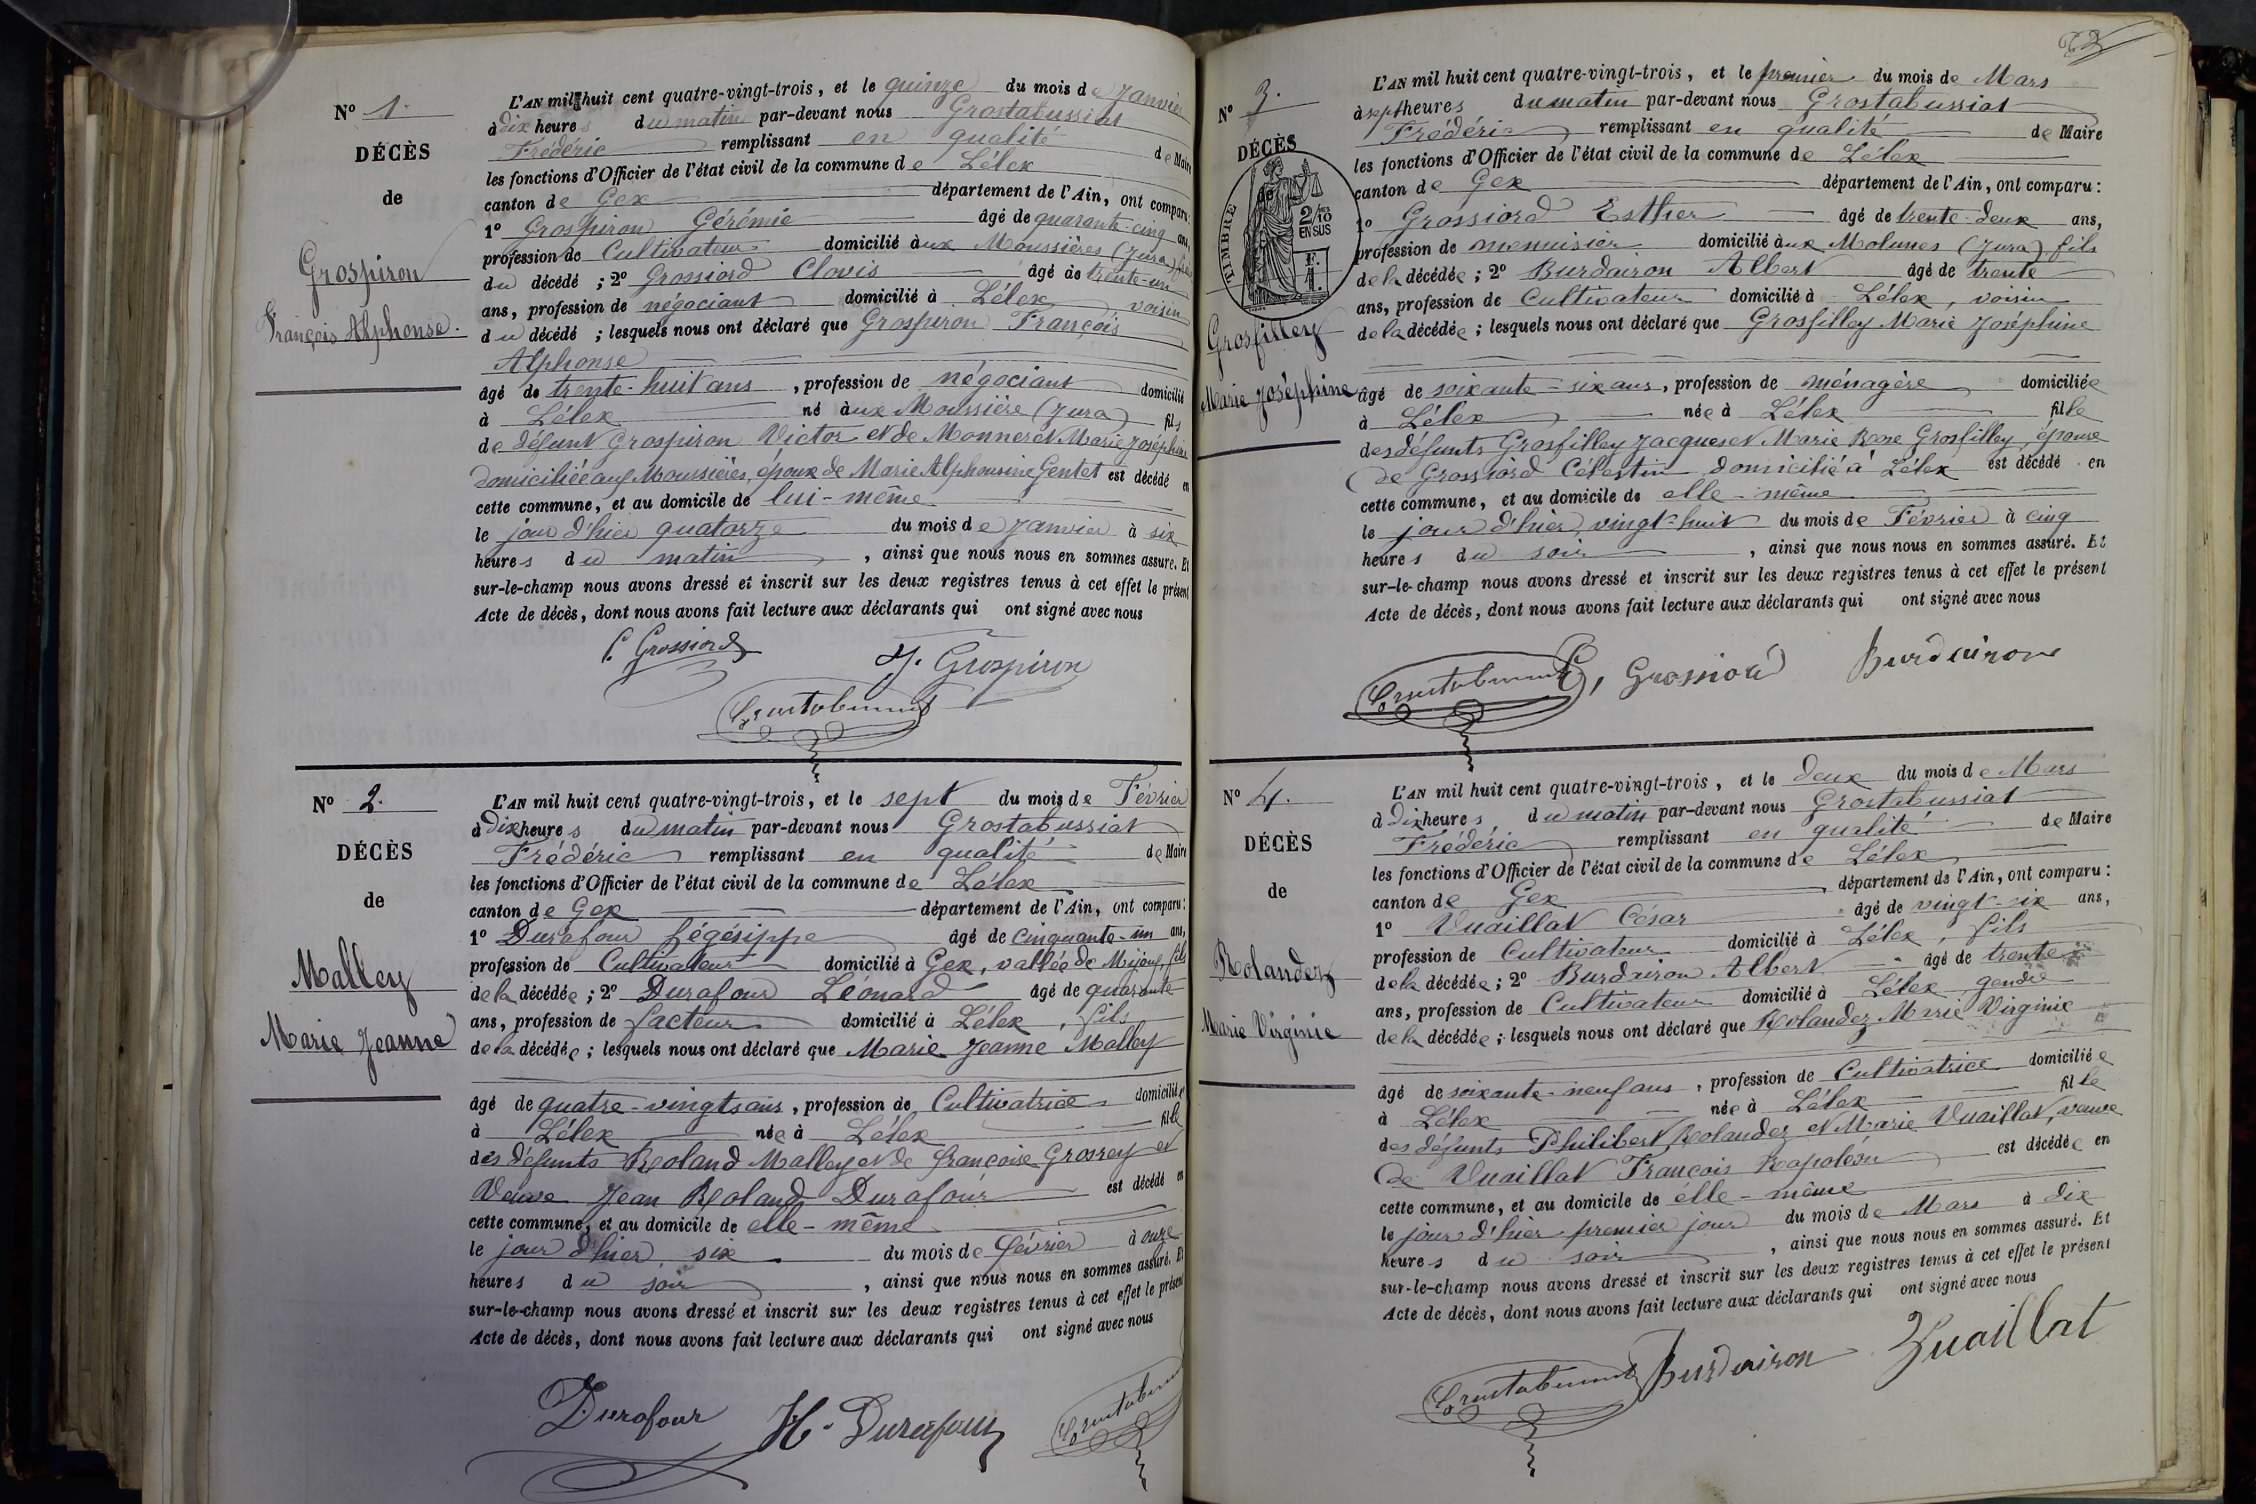 Nº 1.
DÉCÈS
de
Grospiron
François Alphonse.
L'AN mil huit cent quatre-vingt-trois, et le quinze du mois de Janvier
à dix heures du matin par-devant nous Grostabussiat
Frédéric remplissant en qualité de Maire
les fonctions d'Officier de l'état civil de la commune de Lélex
canton de Gex département de l'Ain, ont comparu:
1º Grospiron Gérémie âgé de quarante-cinq ans,
profession de Cultivateur domicilié aux Moussières (Jura)
du décédé ; 2º Grossiord Clovis âgé de trente-un
ans, profession de négociant domicilié à Lélex voisin
du décédé ; lesquels nous ont déclaré que Grospiron François
Alphonse
âgé de trente-huit ans, profession de négociant domicilié
à Lélex né aux Moussière (Jura) fils
de défunt Grospiron Victor et de Monneret Marie Joséphine
domiciliée aux Moussières, époux de Marie Alphonsine Gentet est décédé en
cette commune, et au domicile de lui-même
le jour d'hier quatorze du mois de Janvier à six
heures du matin, ainsi que nous nous en sommes assuré. Et
sur-le-champ nous avons dressé et inscrit sur les deux registres tenus à cet effet le présent
Acte de décès, dont nous avons fait lecture aux déclarants qui ont signé avec nous
C. Grossiord
J. Grospiron
Grostabussiat
Nº 2.
DÉCÈS
de
Malley
Marie Jeanne
L'AN mil huit cent quatre-vingt-trois, et le sept du mois de Février
à dix heures du matin par-devant nous Grostabussiat
Frédéric remplissant en qualité de Maire
les fonctions d'Officier de l'état civil de la commune de Lélex
canton de Gex département de l'Ain, ont comparu:
1º Durafour Hégésippe âgé de cinquante-un ans,
profession de Cultivateur domicilié à Gex, vallée de Mijoux, fils
de la décédée ; 2º Durafour Léonard âgé de quarante
ans, profession de facteur domicilié à Lélex, fils
de la décédée ; lesquels nous ont déclaré que Marie Jeanne Malley
âgé de quatre-vingts ans, profession de Cultivatrice domiciliée
à Lélex née à Lélex fille
des défunts Roland Malley et de françoise Grosrey et
Veuve Jean Roland Durafour est décédé en
cette commune, et au domicile de elle-même
le jour d'hier six du mois de février à onze
heures du soir, ainsi que nous nous en sommes assuré. Et
sur-le-champ nous avons dressé et inscrit sur les deux registres tenus à cet effet le présent
Acte de décès, dont nous avons fait lecture aux déclarants qui ont signé avec nous
Durafour
H. Durafour
Grostabussiat
Nº 3.
DÉCÈS
de
TIMBRE
2/10
EN SUS
Grosfilley
Marie Joséphine
L'AN mil huit cent quatre-vingt-trois, et le premier du mois de Mars
à sept heures du matin par-devant nous Grostabussiat
Frédéric remplissant en qualité de Maire
les fonctions d'Officier de l'état civil de la commune de Lélex
canton de Gex département de l'Ain, ont comparu:
1º Grossiord Esther âgé de trente-deux ans,
profession de menuisier domicilié aux Molunes (Jura) fils
de la décédée ; 2º Burdairon Albert âgé de trente
ans, profession de Cultivateur domicilié à Lélex, voisin
de la décédée ; lesquels nous ont déclaré que Grosfilley Marie Joséphine
âgé de soixante-six ans, profession de ménagère domiciliée
à Lélex née à Lélex fille
des défunts Grosfilley Jacques et Marie Rose Grosfilley, épouse
de Grossiord Célestin domicilié à Lélex est décédé en
cette commune, et au domicile de elle-même
le jour d'hier vingt-huit du mois de Février à cinq
heures du soir, ainsi que nous nous en sommes assuré. Et
sur-le-champ nous avons dressé et inscrit sur les deux registres tenus à cet effet le présent
Acte de décès, dont nous avons fait lecture aux déclarants qui ont signé avec nous
Grostabussiat
E, Grossiord
Burdairon
Nº 4.
DÉCÈS
de
Rolandez
Marie Virginie
L'AN mil huit cent quatre-vingt-trois, et le deux du mois de Mars
à dix heures du matin par-devant nous Grostabussiat
Frédéric remplissant en qualité de Maire
les fonctions d'Officier de l'état civil de la commune de Lélex
canton de Gex département de l'Ain, ont comparu:
1º Vuaillat César âgé de vingt-six ans,
profession de Cultivateur domicilié à Lélex, fils
de la décédée ; 2º Burdairon Albert âgé de trente
ans, profession de Cultivateur domicilié à Lélex gendre
de la décédée ; lesquels nous ont déclaré que Rolandez Marie Virginie
âgé de soixante-neuf ans, profession de Cultivatrice domiciliée
à Lélex née à Lélex fille
des défunts Philibert Rolandez et Marie Vuaillat, veuve
de Vuaillat François Napoléon est décédée en
cette commune, et au domicile de elle-même
le jour d'hier premier jour du mois de Mars à dix
heures du soir, ainsi que nous nous en sommes assuré. Et
sur-le-champ nous avons dressé et inscrit sur les deux registres tenus à cet effet le présent
Acte de décès, dont nous avons fait lecture aux déclarants qui ont signé avec nous
Grostabussiat
Burdairon
Vuaillat